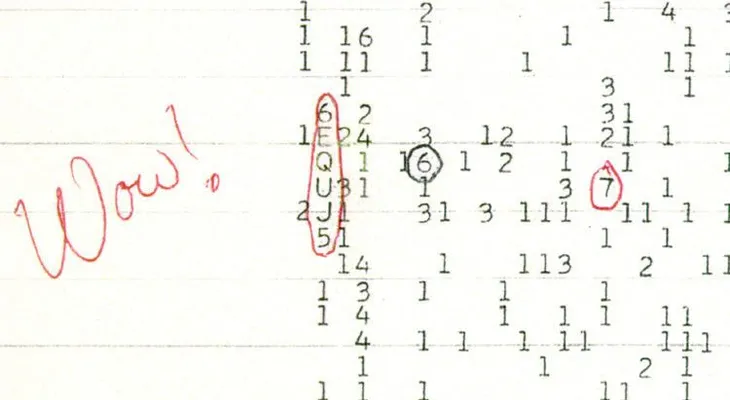 1 2 1 4 3
1 16 1 1 1
1 11 1 1 11 1
1 3 1
6 2 31
1E24 3 12 1 21 1
Q 1 16 1 2 1 1 1
U31 1 3 7 1
2J1 31 3 111 11 1 1
51 1 1
14 1 113 2 11
1 3 1 1 1
1 4 1 1 1 11
4 1 1 1 11 111
1 1 2 1
1 1 1 11 1
Wow!